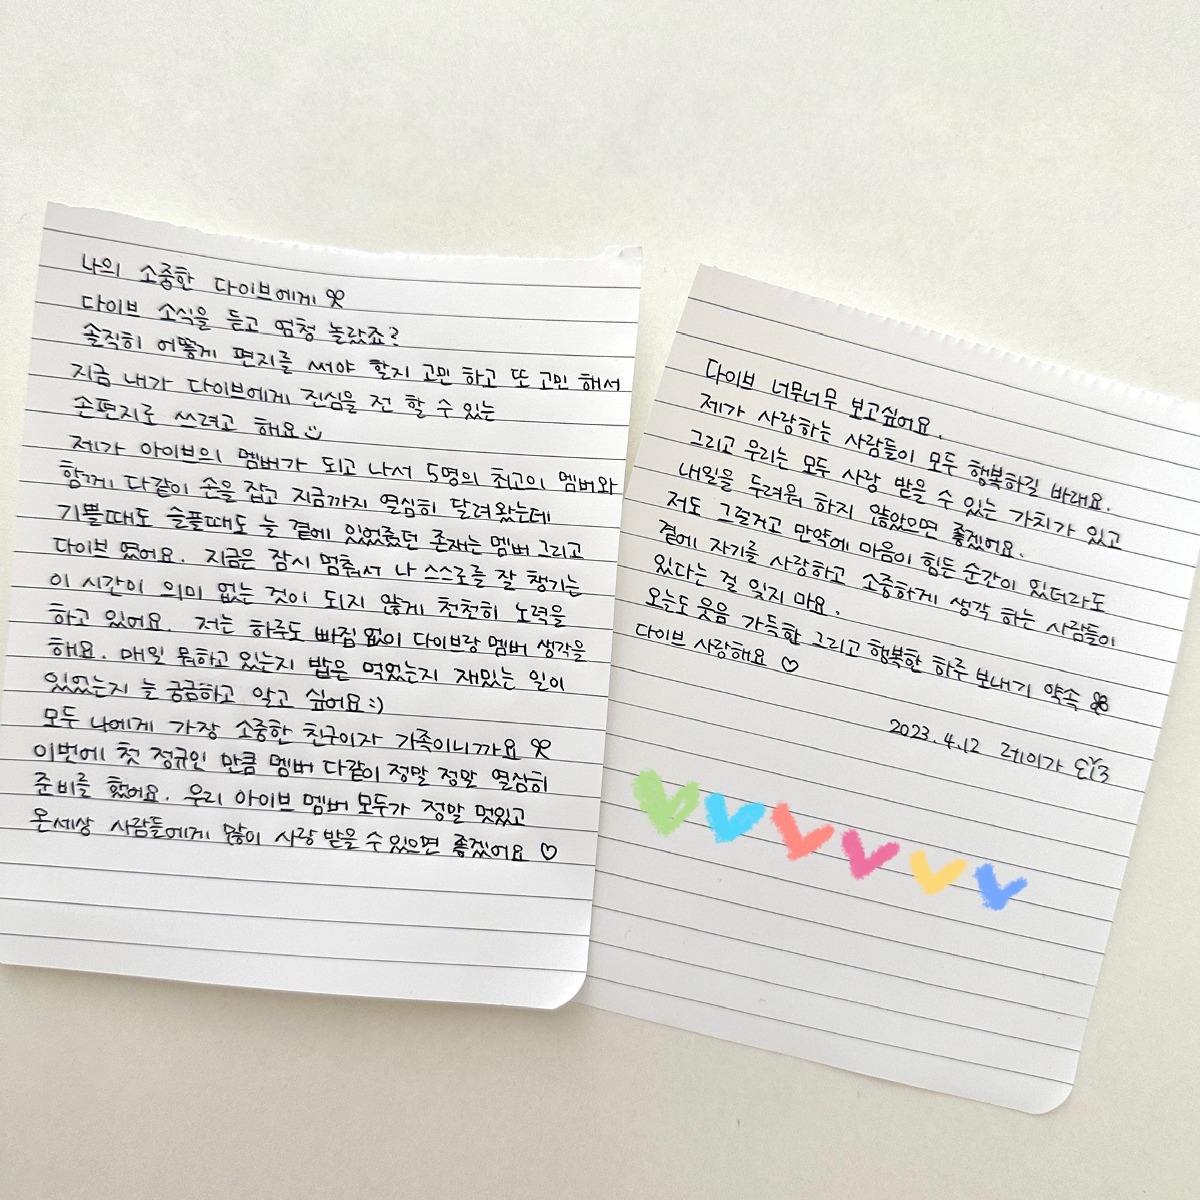 나의 소중한 다이브에게
다이브 소식을 듣고 엄청 놀랐죠?
솔직히 어떻게 편지를 써야 할지 고민 하고 또 고민 해서
지금 내가 다이브에게 진심을 전 할 수 있는
손편지로 쓰려고 해요
제가 아이브의 멤버가 되고 나서 5명의 최고의 멤버와
함께 다같이 손을 잡고 지금까지 열심히 달려왔는데
기쁠때도 슬플때도 늘 곁에 있었던 존재는 멤버 그리고
다이브 였어요. 지금은 잠시 멈춰서 나 스스로를 잘 챙기는
이 시간이 의미 없는 것이 되지 않게 천천히 노력을
하고 있어요. 저는 하루도 빠짐 없이 다이브랑 멤버 생각을
해요. 매일 뭐하고 있는지 밥은 먹었는지 재밌는 일이
있었는지 늘 궁금하고 알고 싶어요:)
모두 나에게 가장 소중한 친구이자 가족이니까요
이번에 첫 정규인 만큼 멤버 다같이 정말 정말 열심히
준비를 했어요. 우리 아이브 멤버 모두가 정말 멋있고
온세상 사람들에게 많이 사랑 받을 수 있으면 좋겠어요 ♡
다이브 너무너무 보고싶어요.
제가 사랑하는 사람들이 모두 행복하길 바래요.
그리고 우리는 모두 사랑 받을 수 있는 가치가 있고
내일을 두려워 하지 않았으면 좋겠어요.
저도 그럴거고 만약에 마음이 힘든 순간이 있더라도
곁에 자기를 사랑하고 소중하게 생각 하는 사람들이
있다는 걸 잊지 마요.
오늘도 웃음 가득한 그리고 행복한 하루 보내기 약속
다이브 사랑해요 ♡
2023.4.12 레이가